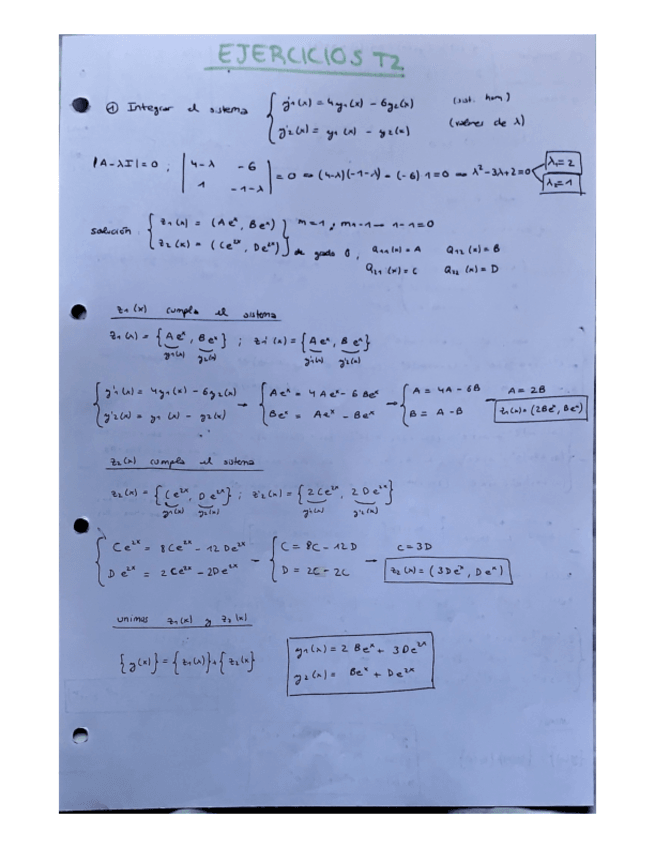 EJERCICIOS T2
① Integrar el sistema { y'1(x) = 4y1(x) - 6y2(x) (sist. hom)
y'2(x) = y1(x) - y2(x) (valores de λ)
|A-λI|=0 ; | 4-λ -6 | = 0 ⇔ (4-λ)(-1-λ) - (-6) 1 = 0 ⇔ λ² - 3λ + 2 = 0 λ1=2
| 1 -1-λ | λ2=1
solución { z1(x) = (Aeˣ, Beˣ) } m=1 ; m1-1 → 1-1=0
z2(x) = (Ce²ˣ, De²ˣ) de grado 0, Q11(x)=A Q12(x)=B
Q21(x)=C Q22(x)=D
z1(x) cumpla el sistema
z1(x) = {Aeˣ, Beˣ} ; z1'(x) = {Aeˣ, Beˣ}
y1(x) y2(x) y'1(x) y'2(x)
{ y'1(x) = 4y1(x) - 6y2(x) → { Aeˣ = 4Aeˣ - 6Beˣ → { A = 4A - 6B → A = 2B
y'2(x) = y1(x) - y2(x) Beˣ = Aeˣ - Beˣ B = A - B z1(x) = (2Beˣ, Beˣ)
z2(x) cumpla el sistema
z2(x) = {Ce²ˣ, De²ˣ} ; z'2(x) = {2Ce²ˣ, 2De²ˣ}
y1(x) y2(x) y'1(x) y'2(x)
{ Ce²ˣ = 8Ce²ˣ - 12De²ˣ → { C = 8C - 12D → C = 3D
De²ˣ = 2Ce²ˣ - 2De²ˣ D = 2C - 2C z2(x) = (3Deˣ, Deˣ)
unimos z1(x) y z2(x)
{y(x)} = {z1(x)} + {z2(x)} y1(x) = 2Beˣ + 3De²ˣ
y2(x) = Beˣ + De²ˣ